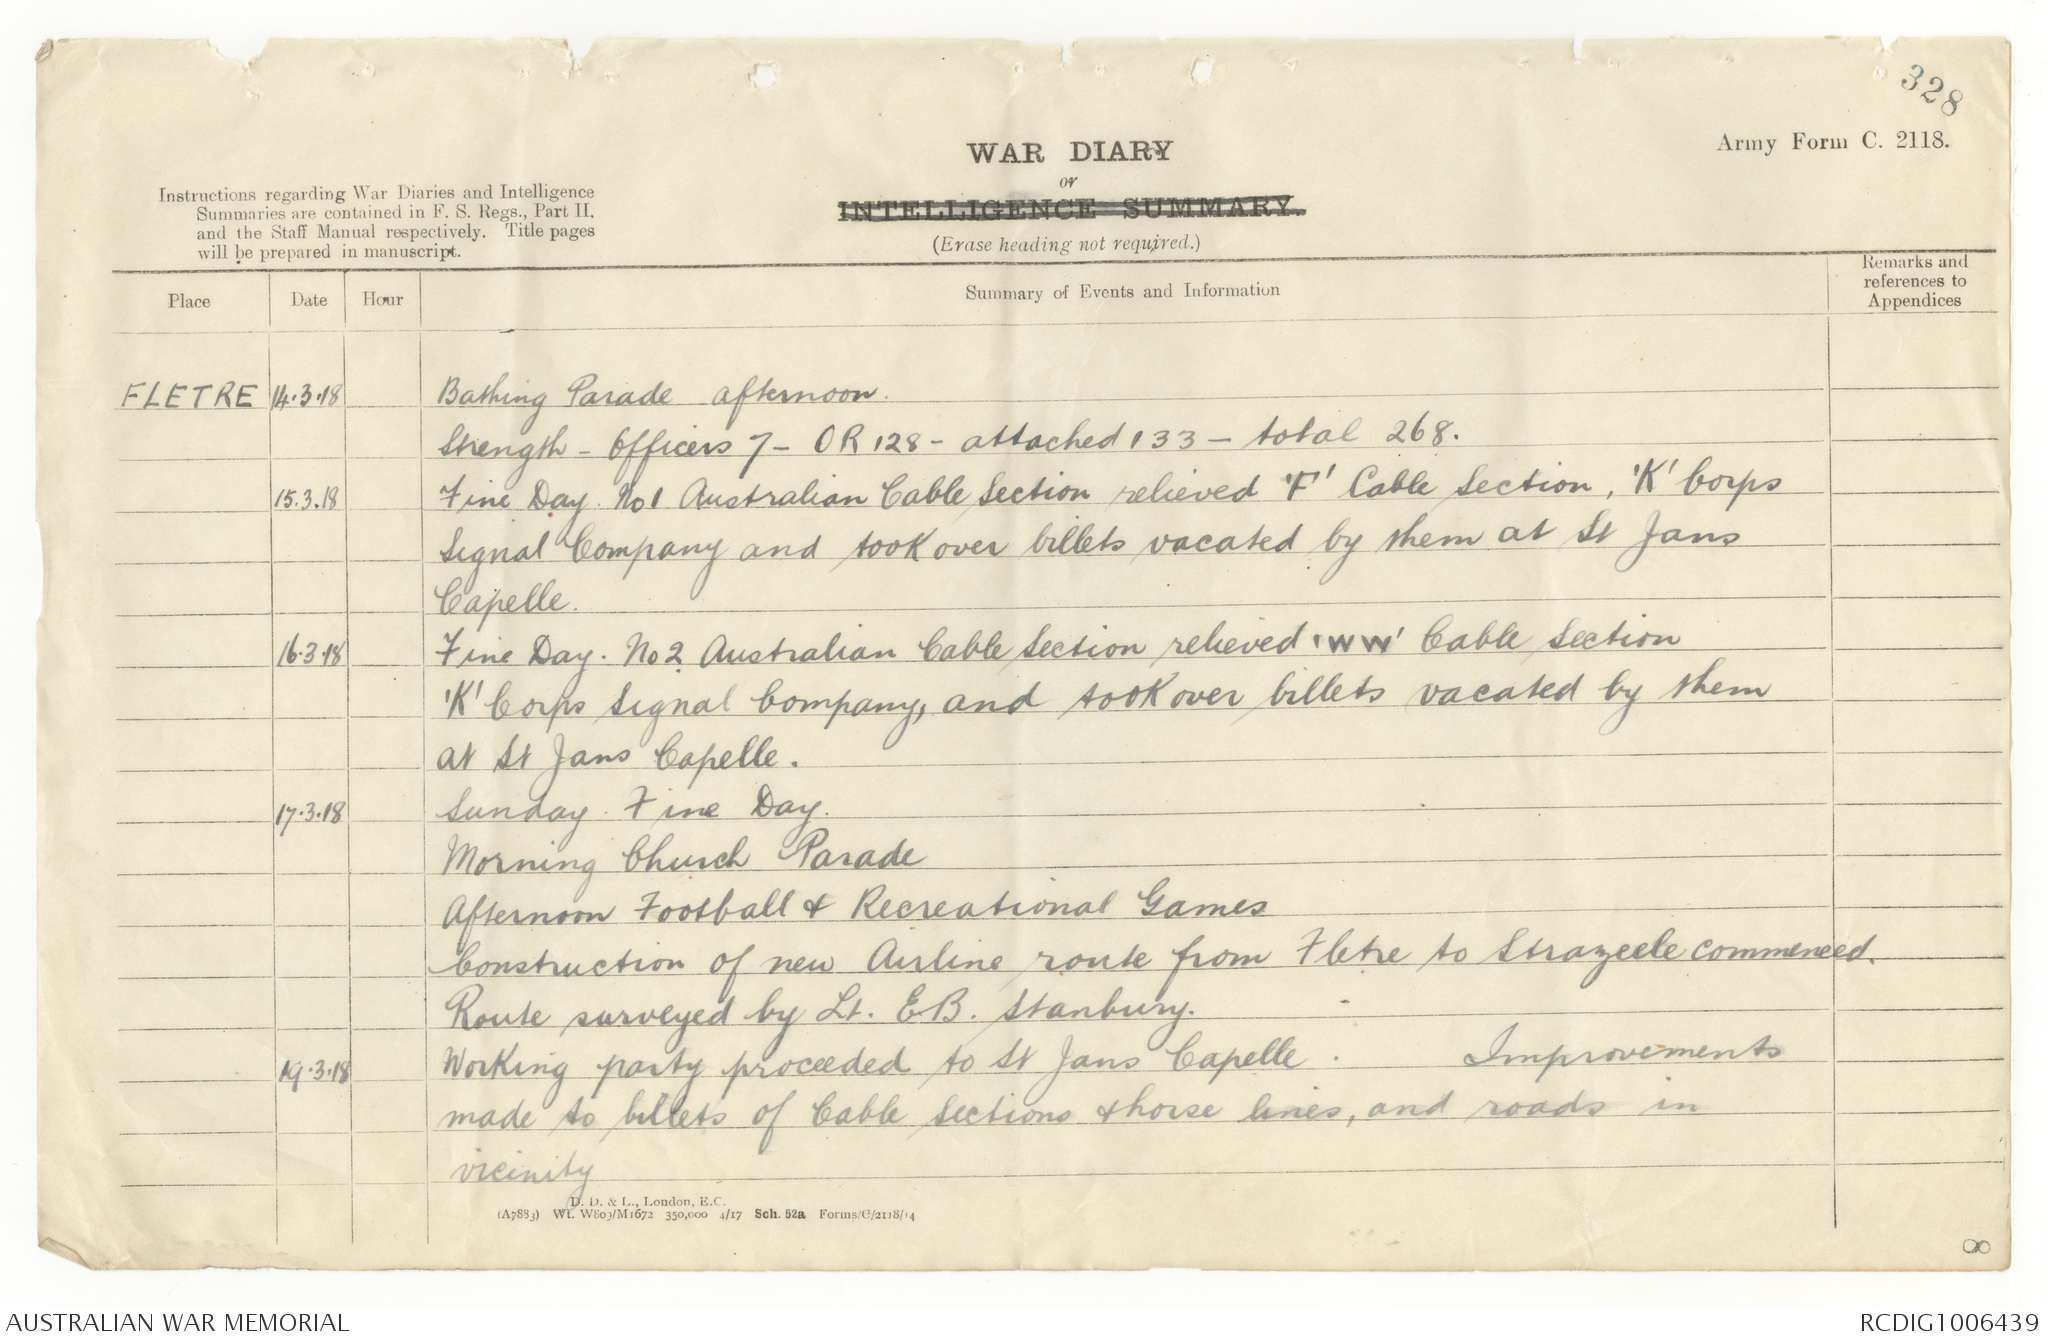 328
Army Form C. 2118.
WAR DIARY
or
INTELLIGENCE SUMMARY.
(Erase heading not required.)
Instructions regarding War Diaries and Intelligence
Summaries are contained in F. S. Regs., Part II.
and the Staff Manual respectively. Title pages
will be prepared in manuscript.
Place Date Hour Summary of Events and Information Remarks and references to Appendices
FLETRE 14.3.18 Bathing Parade afternoon.
Strength - Officers 7 - OR 128 - attached 133 - total 268.
15.3.18 Fine Day. No 1 Australian Cable Section relieved 'F' Cable Section, 'K' Corps
Signal Company and took over billets vacated by them at St Jans
Capelle.
16.3.18 Fine Day. No 2 Australian Cable Section relieved 'WW' Cable Section
'K' Corps Signal Company, and took over billets vacated by them
at St Jans Capelle.
17.3.18 Sunday. Fine Day.
Morning Church Parade
Afternoon Football & Recreational Games
Construction of new Airline route from Fletre to Strazeele commenced.
Route surveyed by Lt. E B. Stanbury.
19.3.18 Working party proceeded to St Jans Capelle. Improvements
made to billets of Cable Sections & horse lines, and roads in
vicinity
D. D. & L., London, E.C.
(A7883) Wt. W809/M1672 350,000 4/17 Sch. 52a Forms/C/2118/14
AUSTRALIAN WAR MEMORIAL
RCDIG1006439